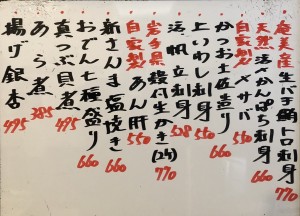 奄美産生バチ鮪トロ刺身 770
天然活〆かんぱち刺身 660
自家製〆サバ 550
かつお土佐造り 660
上いわし刺身 550
活帆立刺身 528
岩手県殻付生かき(2ヶ) 770
自家製あん肝 550
新さんま塩焼き 660
おでん七種盛り 660
真つぶ貝煮 495
あら煮 385
揚げ銀杏 495